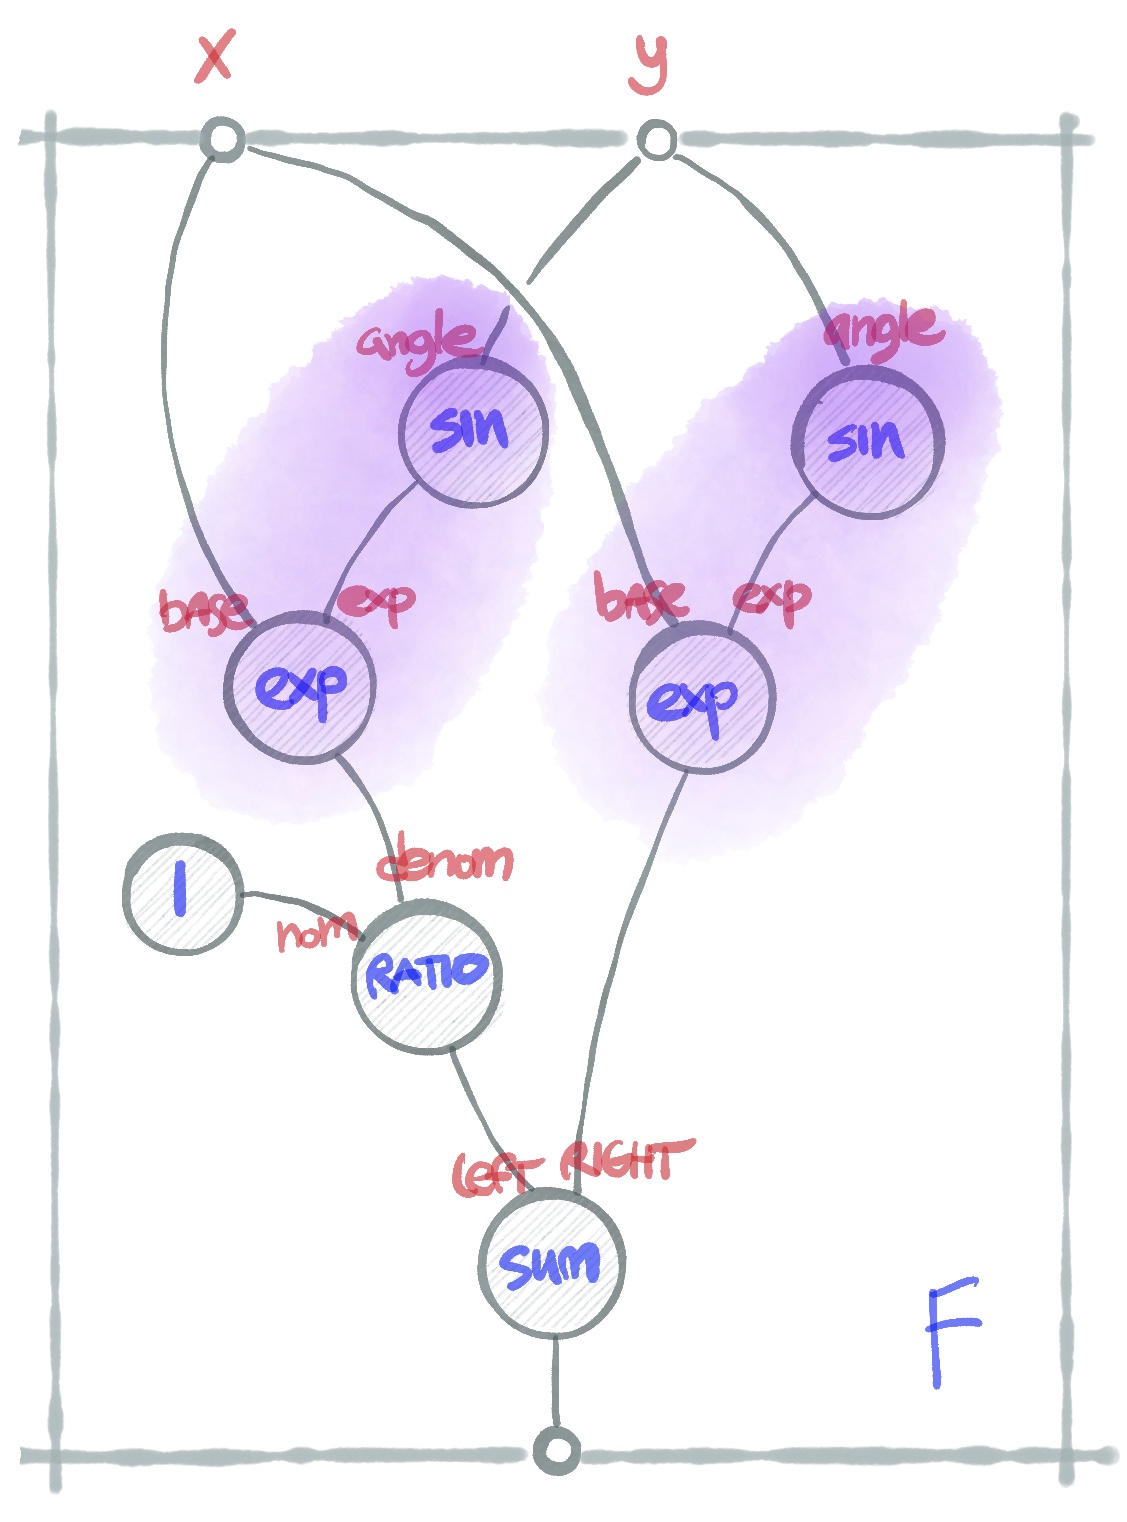 x
y
angle
angle
sin
sin
base
exp
base
exp
exp
exp
denom
1
nom
RATIO
left
RIGHT
sum
F